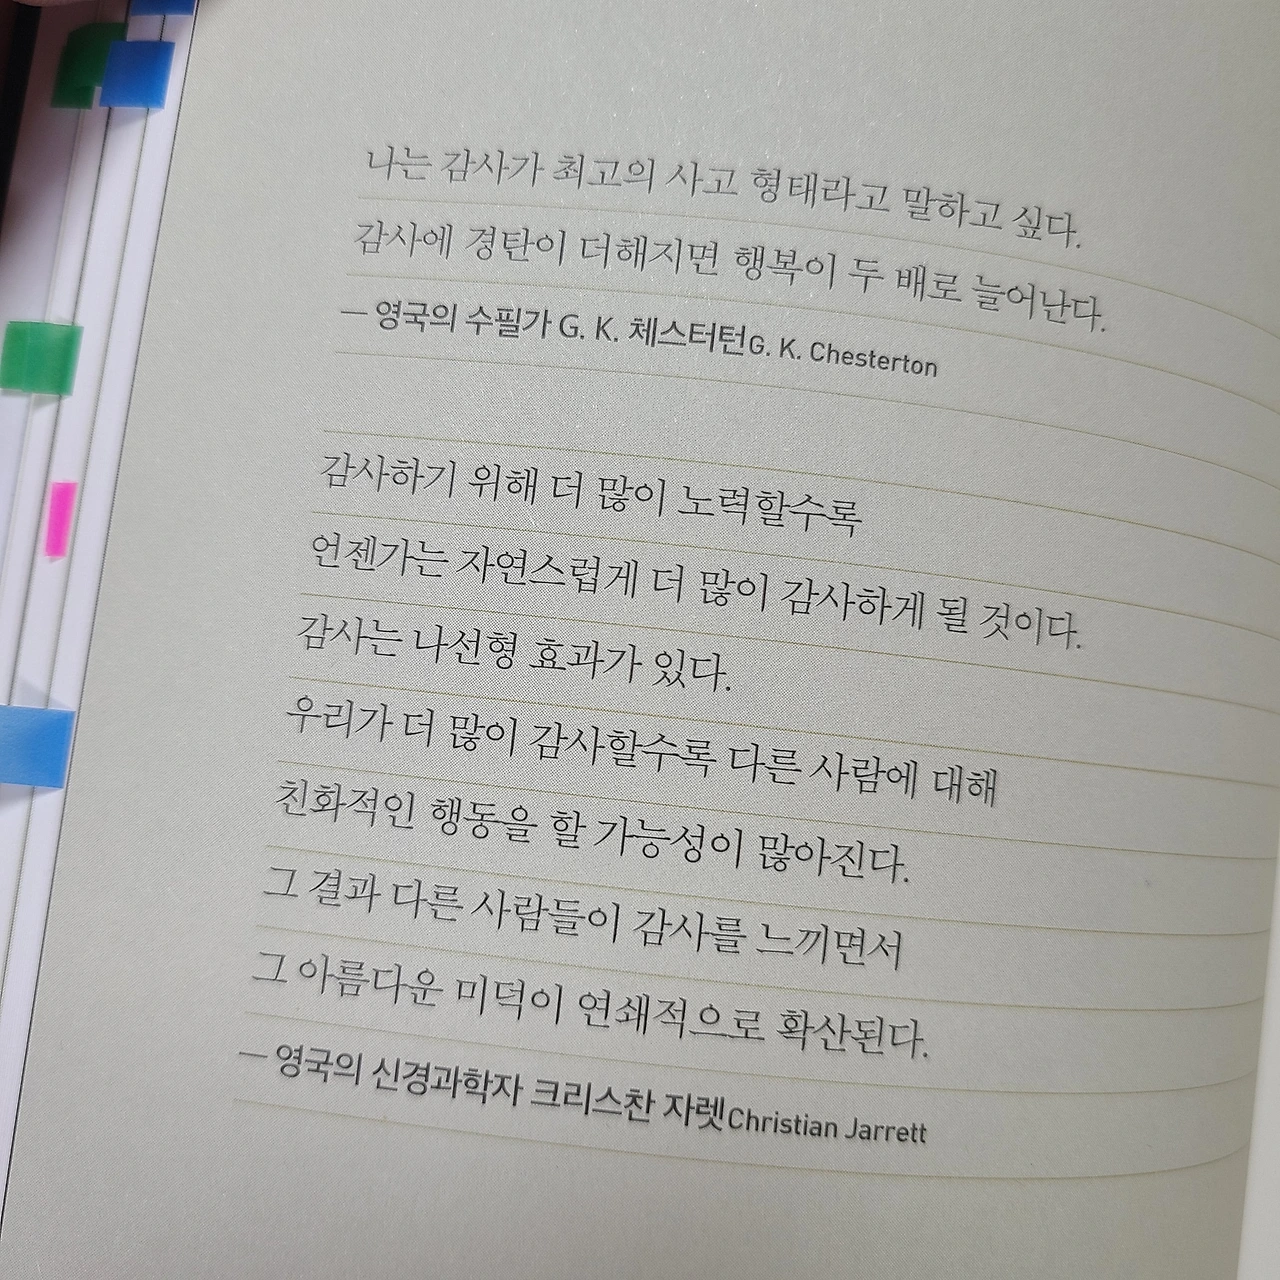 나는 감사가 최고의 사고 형태라고 말하고 싶다.
감사에 경탄이 더해지면 행복이 두 배로 늘어난다.
— 영국의 수필가 G. K. 체스터턴G. K. Chesterton
감사하기 위해 더 많이 노력할수록
언젠가는 자연스럽게 더 많이 감사하게 될 것이다.
감사는 나선형 효과가 있다.
우리가 더 많이 감사할수록 다른 사람에 대해
친화적인 행동을 할 가능성이 많아진다.
그 결과 다른 사람들이 감사를 느끼면서
그 아름다운 미덕이 연쇄적으로 확산된다.
— 영국의 신경과학자 크리스찬 자렛Christian Jarrett